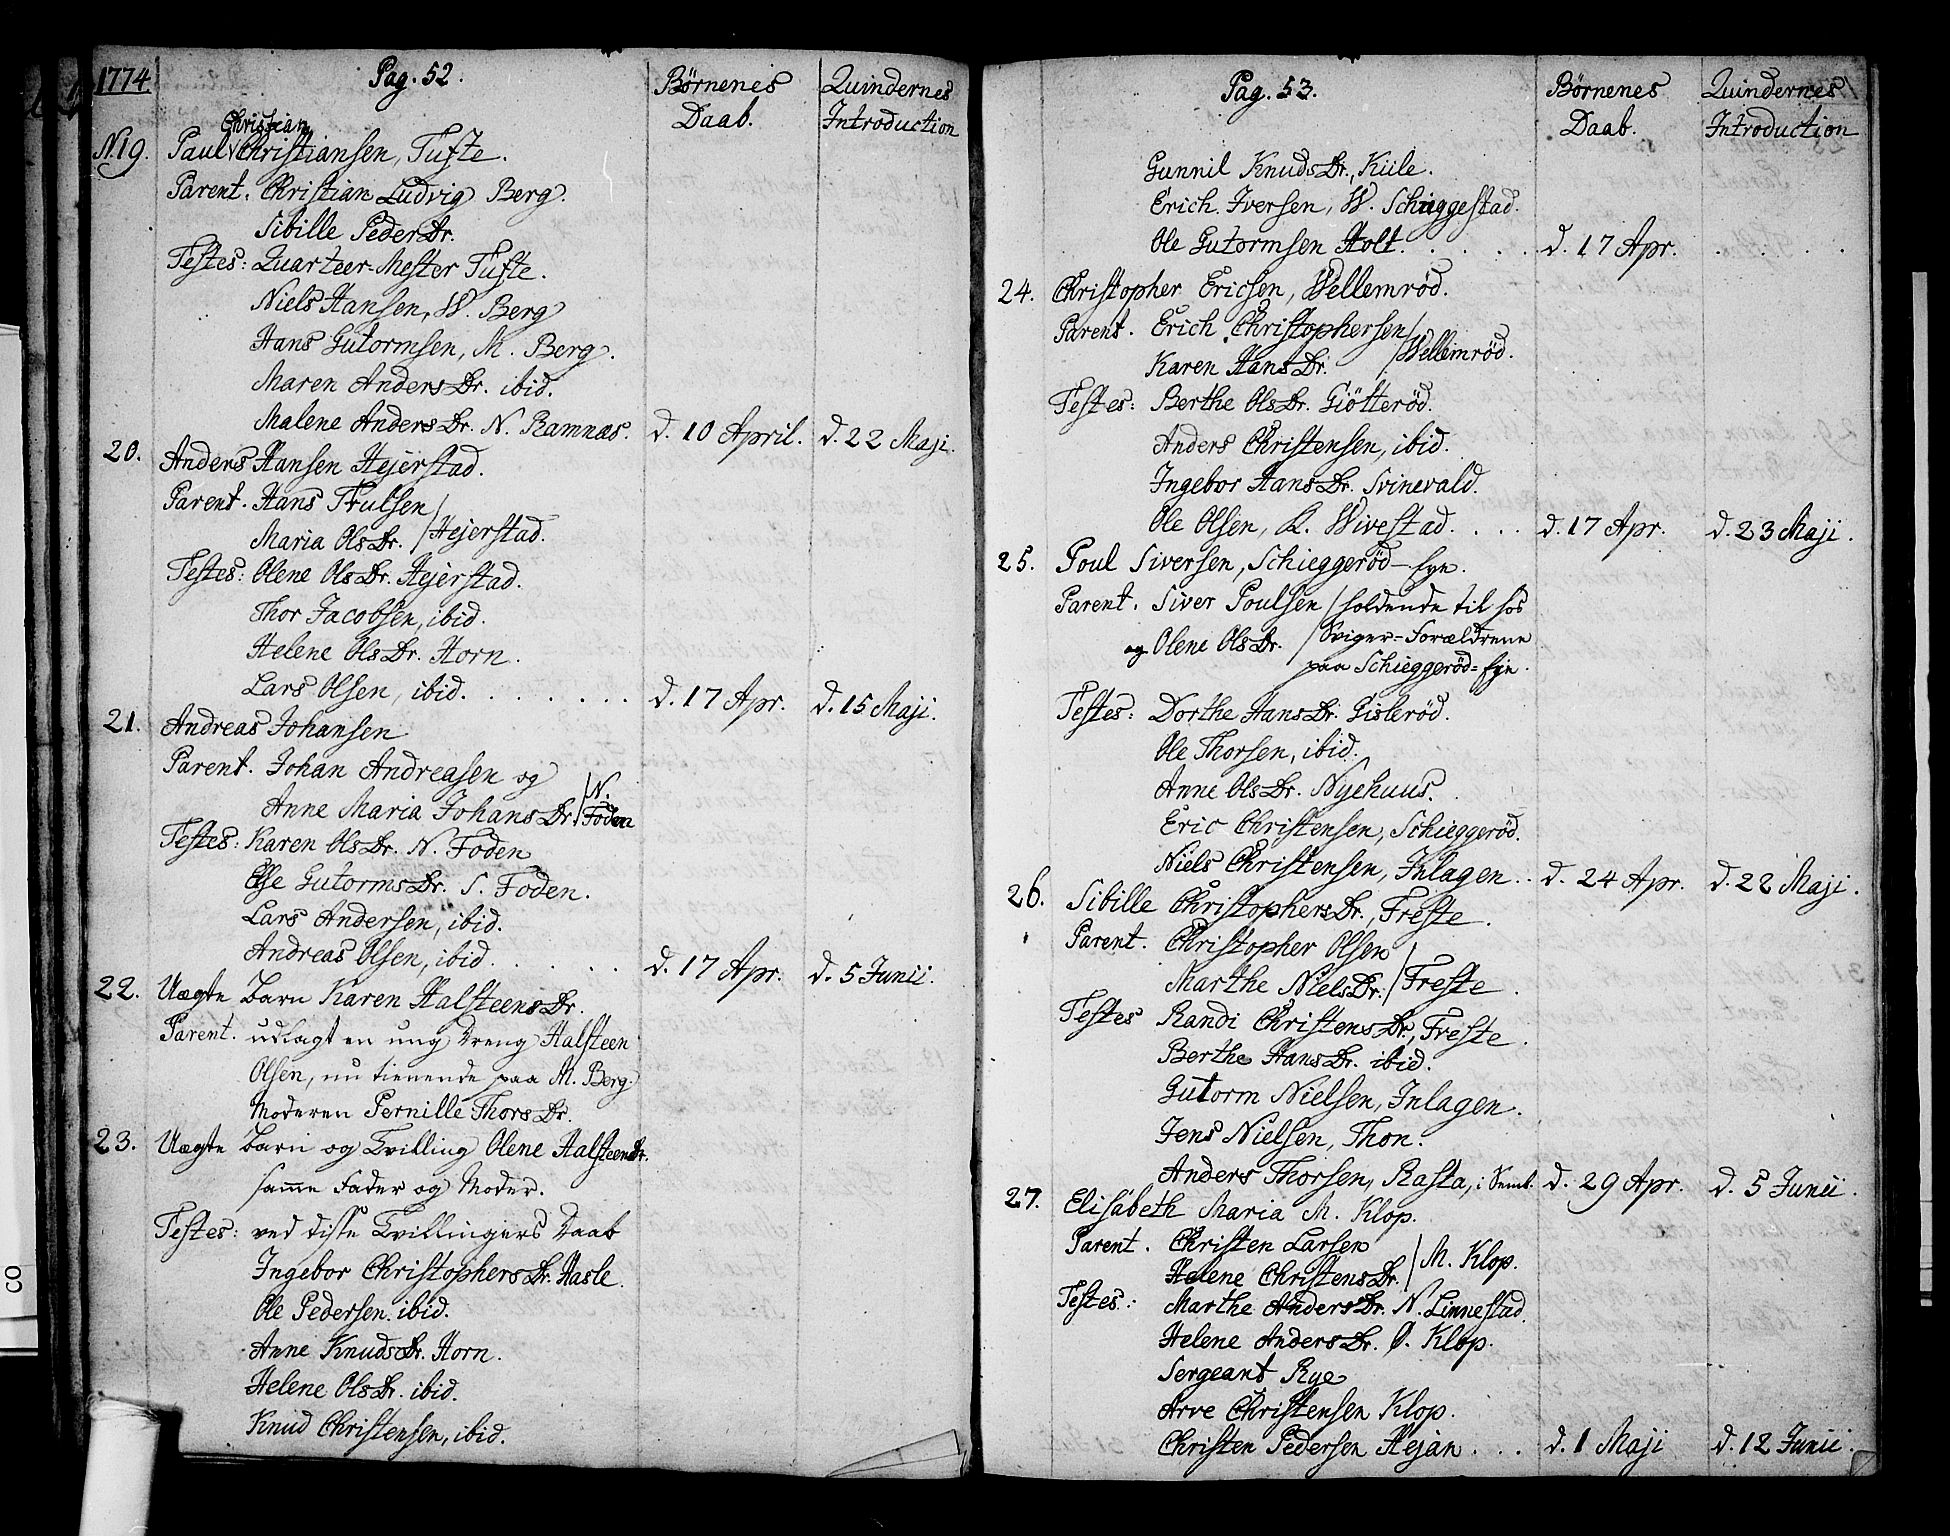 1774. Pag. 52. Börnenes Daab. Quindernes Introduction
Christian
N. 19. Paul Christiansen, Tufte.
Parent. Christian Ludvig Berg.
Sibille PedersDr.
Testes: Quarteer-Mester Tufte.
Niels Hansen, W. Berg
Hans Gutormsen, M. Berg.
Maren AndersDr. ibid.
Malene AndersDr. N. Ramnæs. d. 10 April. d. 22 Maji.
20. Anders Hansen Hejerstad.
Parent. Hans Trulsen
Maria OlsDr. / Hejerstad.
Testes: Olene OlsDr. Hejerstad.
Thor Jacobsen, ibid.
Helene OlsDr. Horn.
Lars Olsen, ibid. . . . . . . d. 17 Apr. d. 15 Maji.
21. Andreas Johansen
Parent. Johan Andreasen og
Anne Maria JohansDr. / N. Foden
Testes: Karen OlsDr. N. Foden
Else GutormsDr. S. Foden.
Lars Andersen, ibid.
Andreas Olsen, ibid. . . . . d. 17 Apr. d. 5 Junii.
22. Uægte barn Karen HalsteensDr.
Parent. udlagt en ung Dreng Halsteen
Olsen, nu tienende paa M. Berg.
Moderen Pernille ThorsDr.
23. Uægte barn og Tvilling Olene HalsteensDr.
samme Fader og Moder.
Testes: ved disse Tvillingers Daab
Ingebor ChristophersDr. Hasle.
Ole Pedersen. ibid.
Anne KnudsDr. Horn.
Helene OlsDr. ibid.
Knud Christensen, ibid.
Pag. 53. Börnenes Daab. Quindernes Introduction
Gunnil KnudsDr. Kiile.
Erich Iversen, W. Schieggestad.
Ole Gutormsen Holt. . . . . d. 17 Apr. . . . .
24. Christopher Ericsen, Wellemröd.
Parent. Erich Christophersen
Karen HansDr. / Wellemröd.
Testes: Berthe OlsDr. Giötteröd.
Anders Christensen, ibid.
Ingebor HansDr. Svinevald.
Ole Olsen, K. Wivestad. . . . d. 17 Apr. d. 23 Maji.
25. Poul Siversen, Schieggeröd-Eye.
Parent. Siver Poulsen / holdende til hos
og Olene OlsDr. / Sviger-Forældrene
paa Schieggeröd-Eye.
Testes: Dorthe HansDr. Gisleröd.
Ole Thorsen, ibid.
Anne OlsDr. Nyehuus.
Eric Christensen, Schieggeröd.
Niels Christensen, Inlagen. . d. 24 Apr. d. 22 Maji.
26. Sibille ChristophersDr., Freste.
Parent. Christopher Olsen
Marthe NielsDr. / Freste.
Testes Randi ChristensDr., Freste.
Berthe HansDr. ibid.
Gutorm Nielsen, Inlagen.
Jens Nielsen, Thon.
Anders Thorsen, Rasta, i Semb. d. 29 Apr. d. 5 Junii.
27. Elisabeth Maria M. Klop.
Parent. Christen Larsen
Helene ChristensDr. / M. Klop.
Testes: Marthe AndersDr. N. Linnestad.
Helene AndersDr. Ø. Klop.
Sergeant Rye
Arve Christensen Klop.
Christen Pedersen Hejan . . . d. 1 Maji d. 12 Junii.